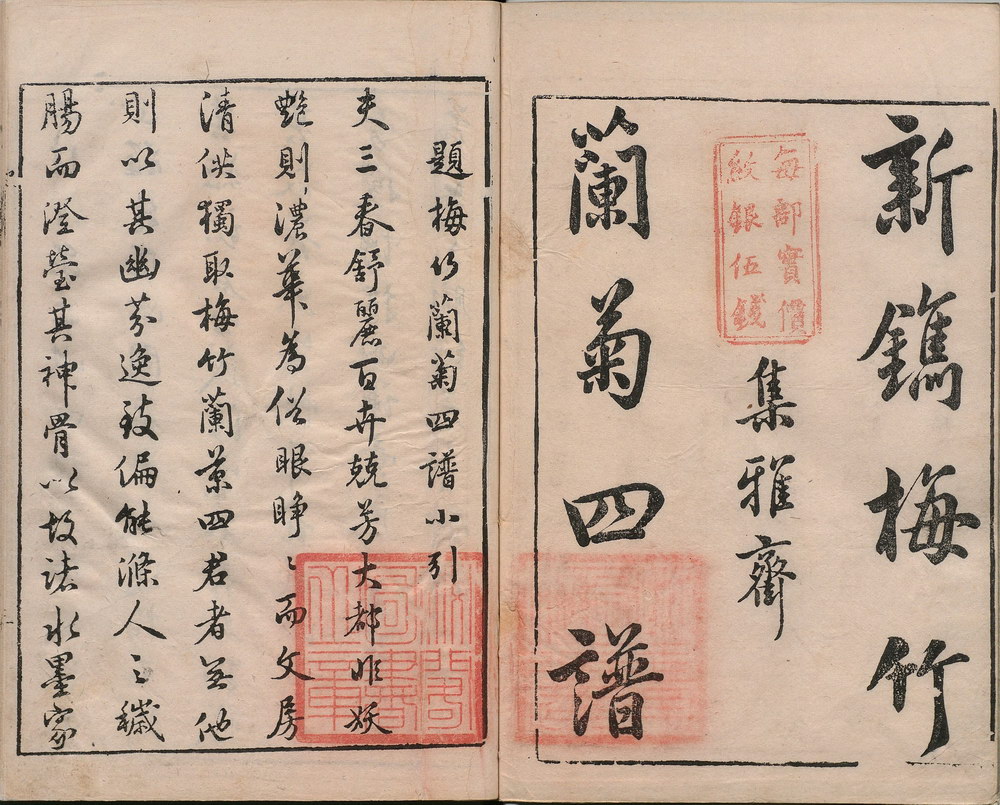 新鐫梅竹
每部實價
紋銀伍錢
集雅齋
蘭菊四譜
題梅竹蘭菊四譜小引
夫三春舒麗百卉競芳大都非妖
艷則濃華為俗眼睜〻而文房
清供獨取梅竹蘭菊四君者無他
則以其幽芬逸致偏能滌人之穢
腸而澄瑩其神骨以故諸水墨家